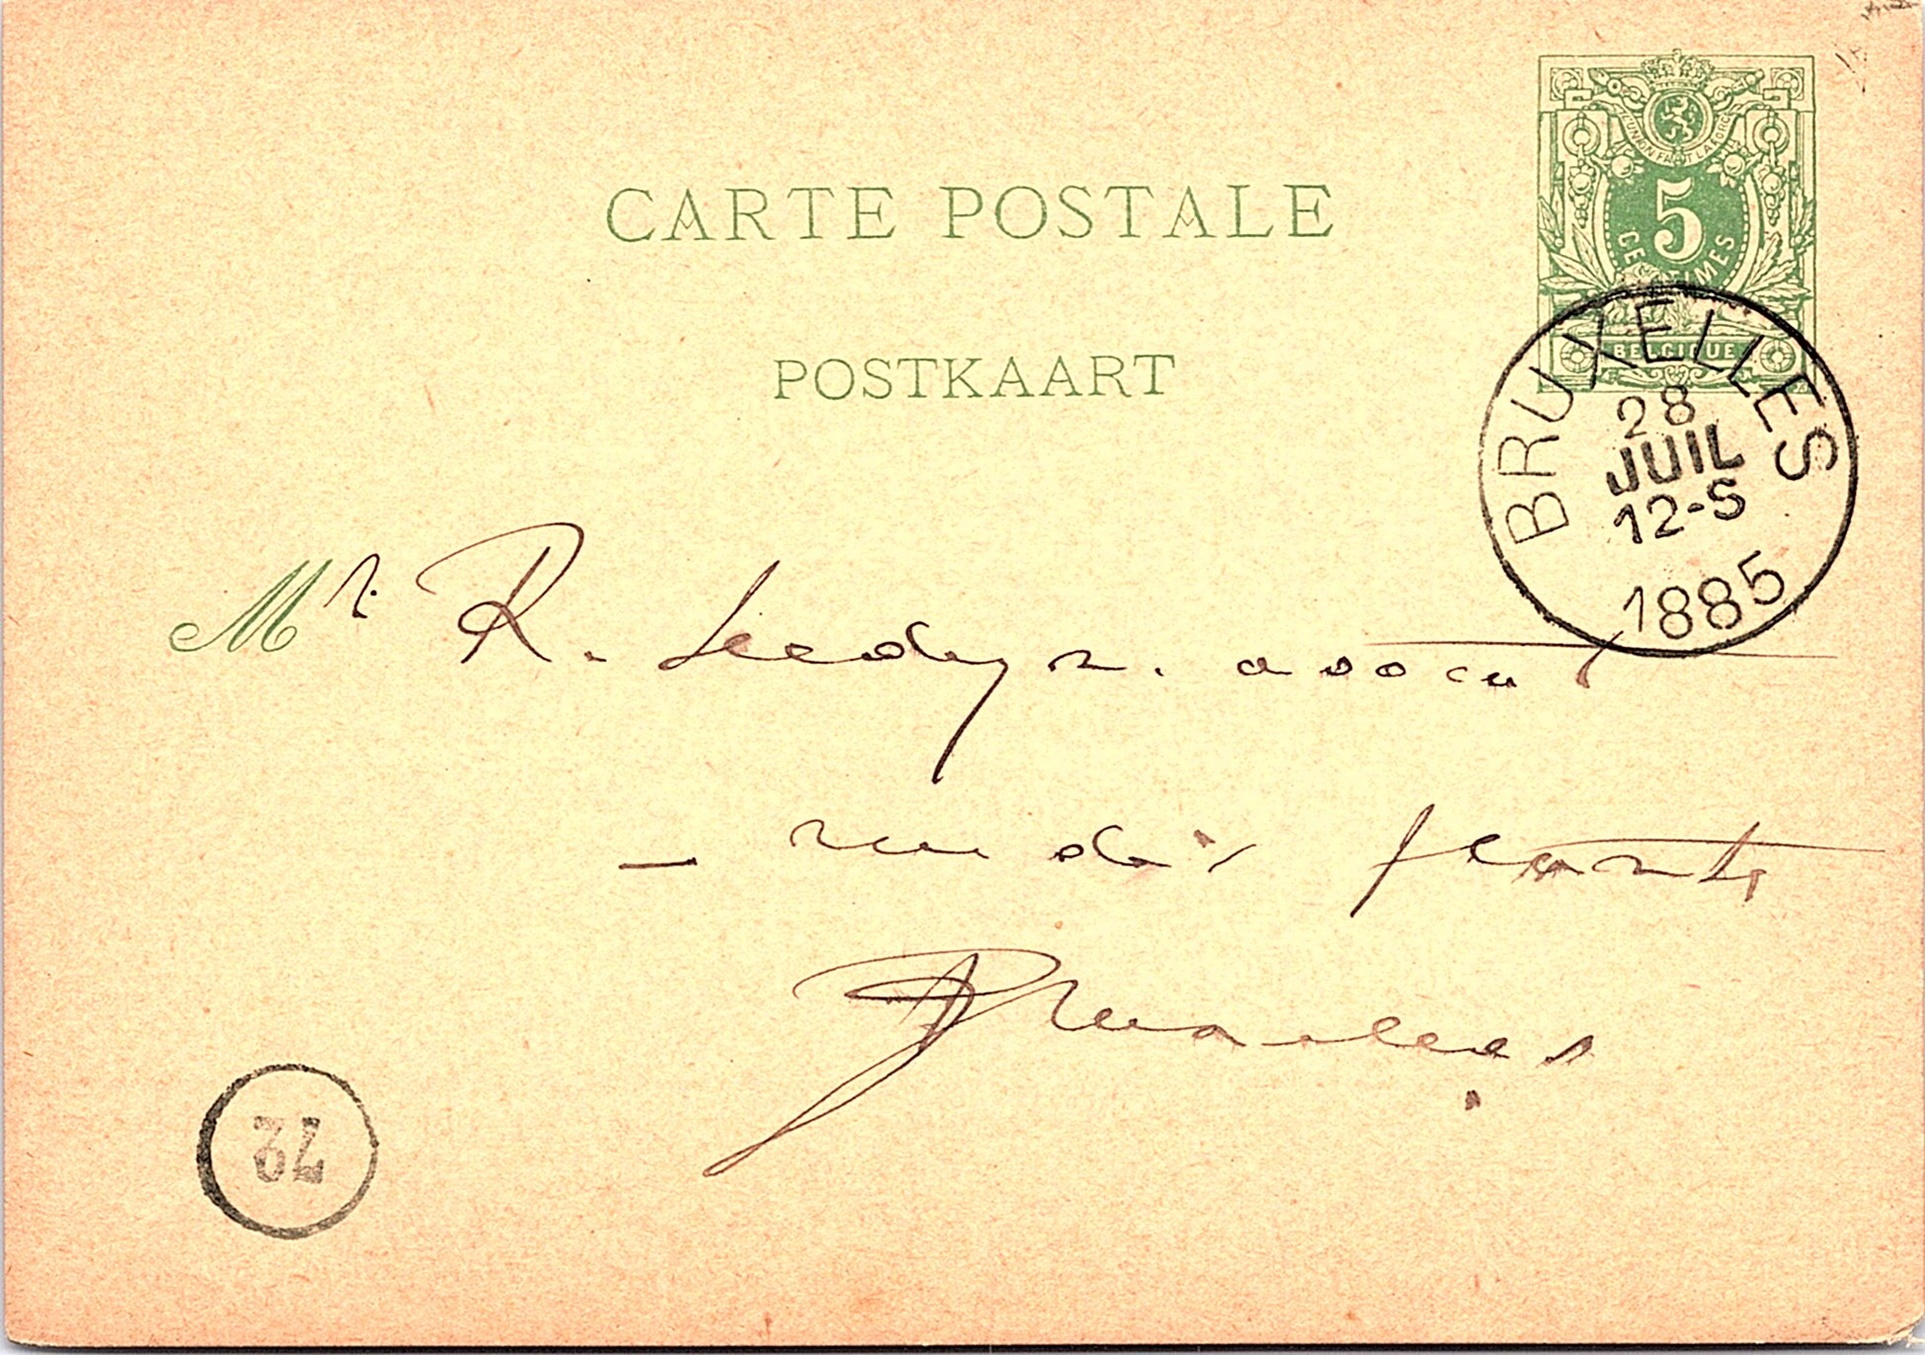 CARTE POSTALE
L'UNION FAIT LA FORCE
5
CENTIMES
BELGIQUE
POSTKAART
BRUXELLES
28
JUIL
12-S
1885
Mr. R. avocat
rue
Bruxelles
34